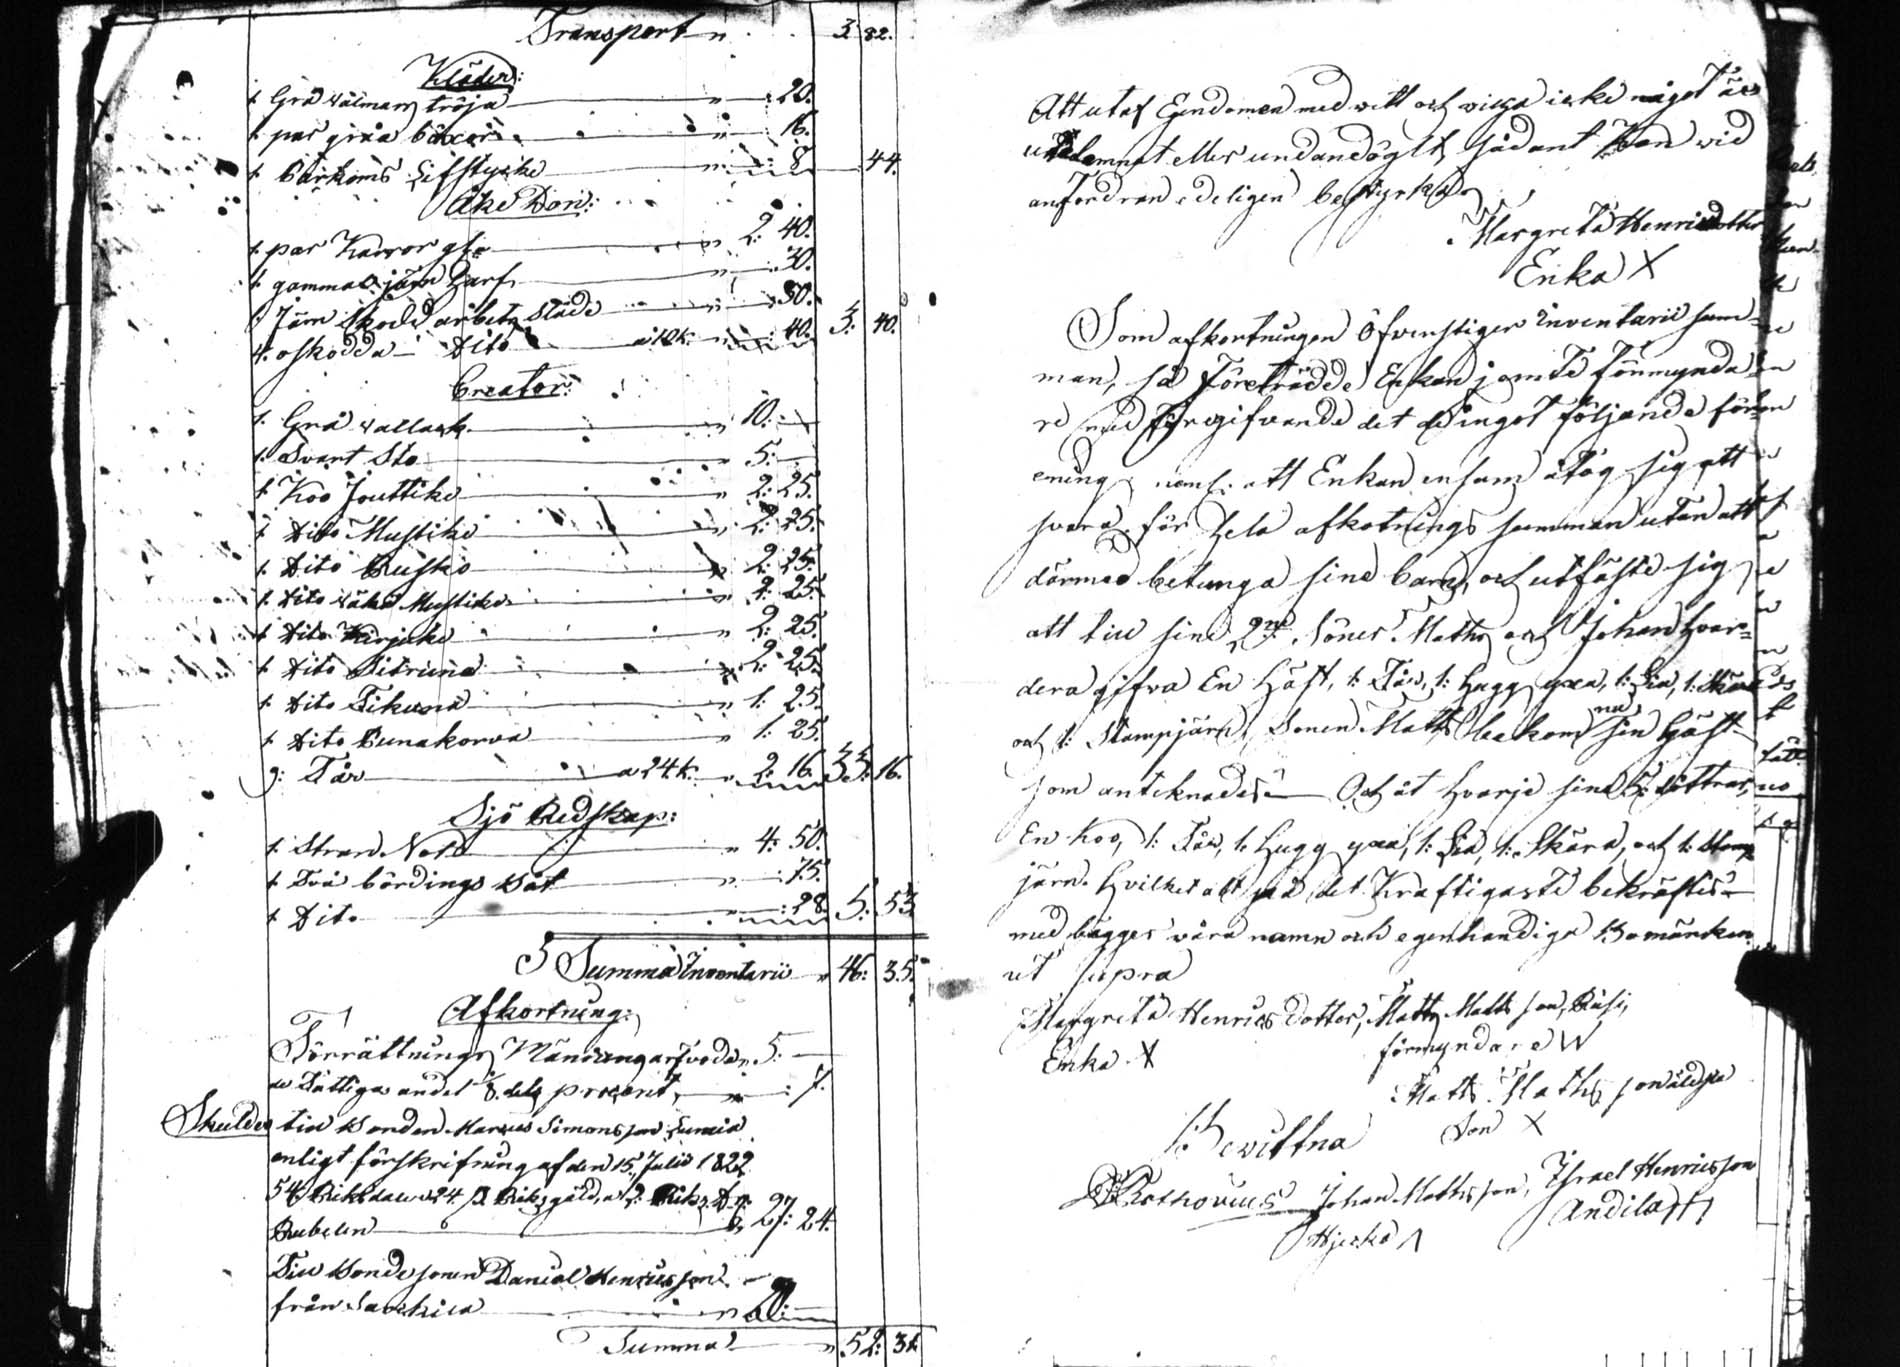 Transport 3. 82.
Kläder:
1. Grå wallmans tröja 20.
1. par gråa böxor 16.
1. Barkoms Lifstycke 8 44.
Åke Don:
1. par Kärror gl. 2. 40.
1. gammal järn Harf 30.
1. Järn skodd arbets Släde 50.
4. oskodda Dito a 10 k. 40. 3. 40.
Creatur:
1. Grå wallack 10.
1. Svart Sto 5.
1. Koo Jouttike 2. 25.
1. Dito Mustike 2. 25.
1. Dito Rusko 2. 25.
1. Dito wähä Mustike 2. 25.
1. Dito Kirjake 2. 25.
1. Dito 2. 25.
1. Dito Tikuna 1. 25.
1. Dito Punakorva 1. 25.
9. Får a 24 k. 2. 16. 33. 16.
Sjö Redskap:
1. Strand Not 4. 50.
1. Två bördings Båt 75.
1. Dito 28 5. 53
Summa Inventarii 46. 35.
Afkortning:
Förrättnings Männens arfvode 5.
de Fattigas andel 1/8 dels procent 7.
Skulder till Bonden Marcus Simonsson
enligt förskrifning af den 15 Julii 1822
54 Riksdaler 24 Riksgäld, a 2 Riksd.
Rubeln 27: 24.
Till Bonde sonen Daniel Henricsson
från 20:
Summa 52: 31.
Att utaf Egendomen med vett och vilja icke något är
utelemnat eller undandögt, sådant kan wid
anfordran edeligen bestyrka
Margreta Henricsdotter
Enka X
Som afkortningen Öfverstiger Inventarii sum=
man, så Företrädde Enkan jemte Förmynda=
re med Förregifvande det de ingot följande för=
ening, neml: att Enkan ensam åtog sig att
svara för hela afkortnings summan utan att
dermed betunga sine barn, och utfäste sig
att till sine 2ne Söner Matts och Johan hvar=
dera gifva En Häst, 1: Får, 1: Hugg yxa, 1: Lia, 1: Skära
och 1: Stampjärn, Sonen Matts bekom nu sin Häst
som antecknades. Och åt hvarje sine 5 döttrar,
En Koo, 1: Får, 1: Hugg yxa, 1: Lia, 1: Skära, och 1: Stamp
järn. Hvilket alt på det Kraftigaste bekräftes
med bägges våra namn och egenhändige Bomärken
ut supra
Margreta Henricsdotter, Matts Mattsson,
Enka X förmyndare W
Matts Mattsson äldsta
Son X
Bevittna
Johan Mattsson, Israel Henricsson
Andila